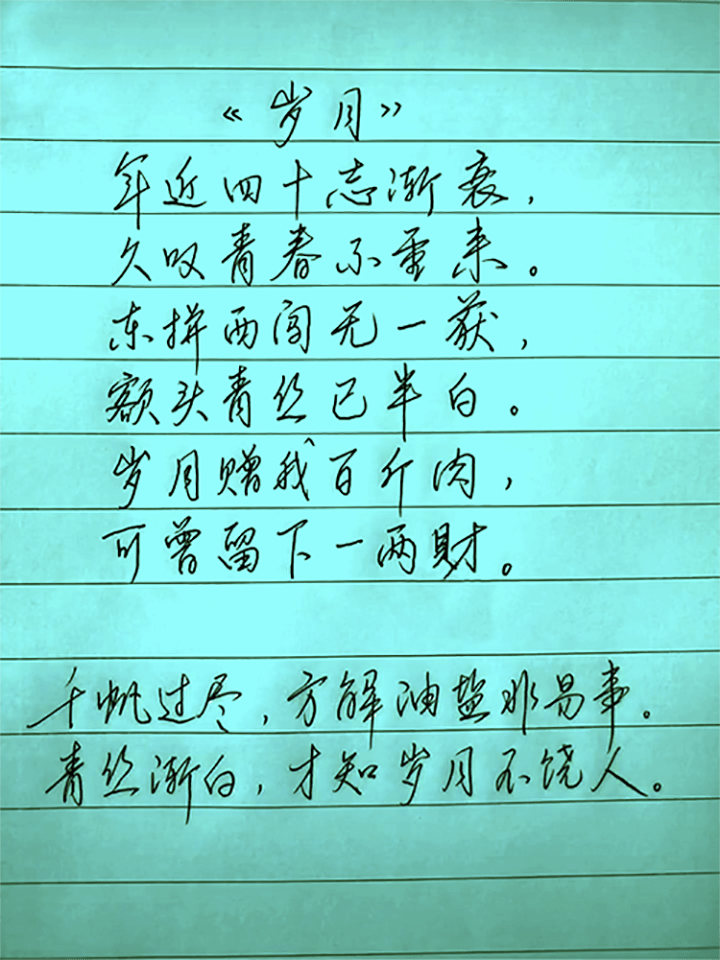 《岁月》
年近四十志渐衰，
久叹青春不重来。
东拼西闯无一获，
额头青丝已半白。
岁月赠我百斤肉，
可曾留下一两财。
千帆过尽，方解油盐非易事。
青丝渐白，才知岁月不饶人。